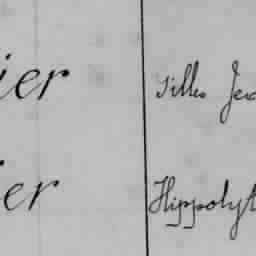 ier Silles Jea
ier Hippolyt